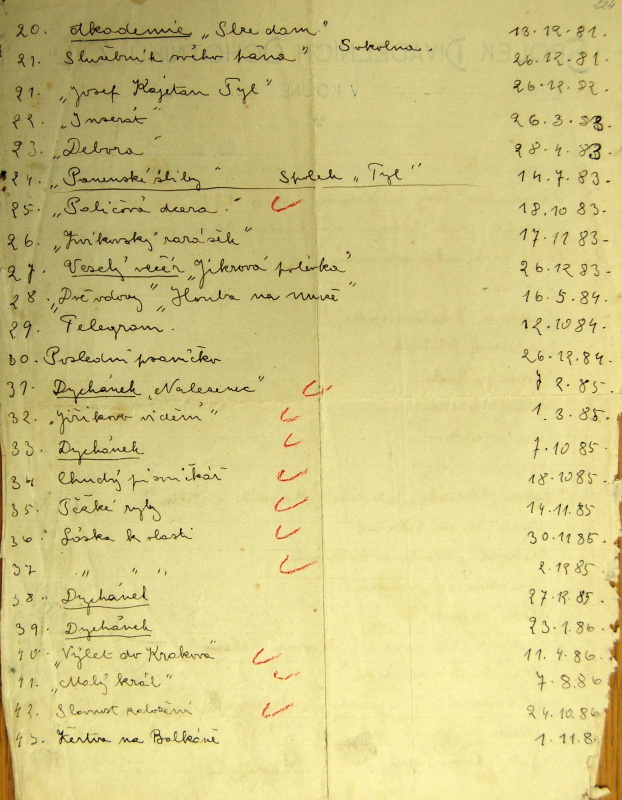 124
20. Akademie „Sládam" 13.12.81.
21. Služebník svého pána" Sokolna. 26.12.81.
21. „Josef Kajetan Tyl" 26.12.82
22. „Inserát" 26.3.83.
23. „Debora" 28.4.83
24. „Panenské sliby" Spolek „Tyl" 14.7.83-
25. „Paličova dcera." 18.10 83-
26. „Zvíkovský rarášek" 17.11 83-
27. Veselý večer „Jikrová polévka" 26.12 83-
28. „Dvě vdovy" „Houba na muně" 16.5.84.
29. Telegram. 12.10 84.
30. Poslední psaníčko 26.12.84.
31. Dychánek „Nalezenec" 7 2.85.
32. „Jiříkovo vidění" 1.3.85.
33. Dychánek 7.10 85
34 Chudý písničkář 18.10 85.
35. Těžké ryby 14.11.85
36. Láska k vlasti 30.11 85.
37 „ „ „ 2.12 85
38. Dychánek 27.12.85.
39. Dychánek 23.1.86.
40. „Výlet do Krakova" 11.4.86.
41. „Malý král" 7.8.86
42. Slavnost založení 24.10.86
43. Žertva na Balkáně 1.11.8